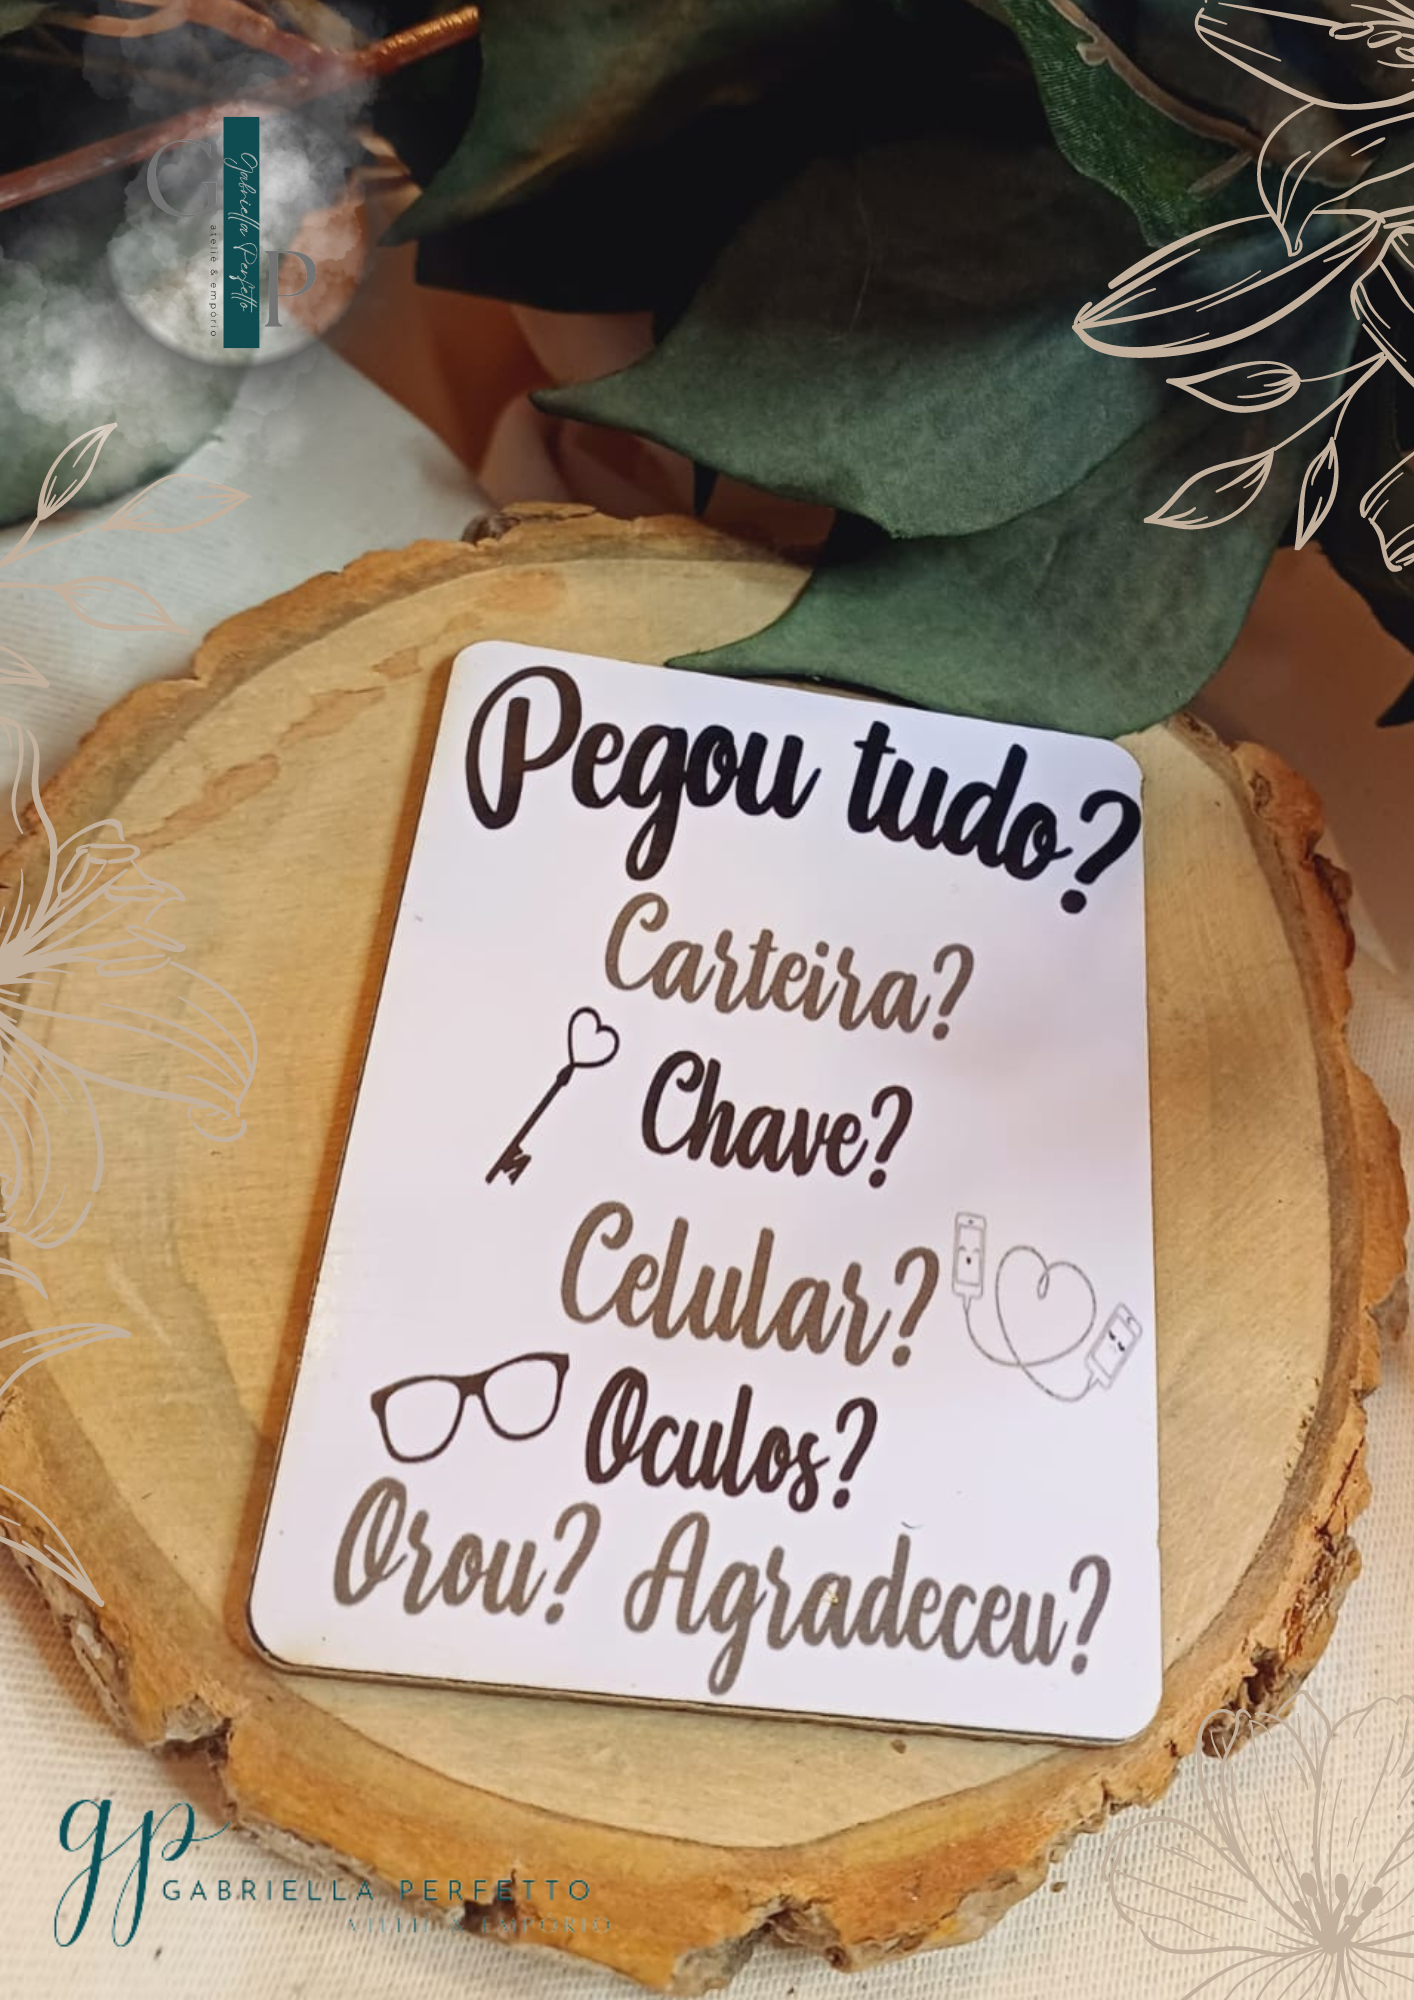 G
Gabriella Perfetto
ateliê & empório
P
Pegou tudo?
Carteira?
Chave?
Celular?
Oculos?
Orou? Agradeceu?
gp
GABRIELLA PERFETTO
ATELIÊ & EMPÓRIO